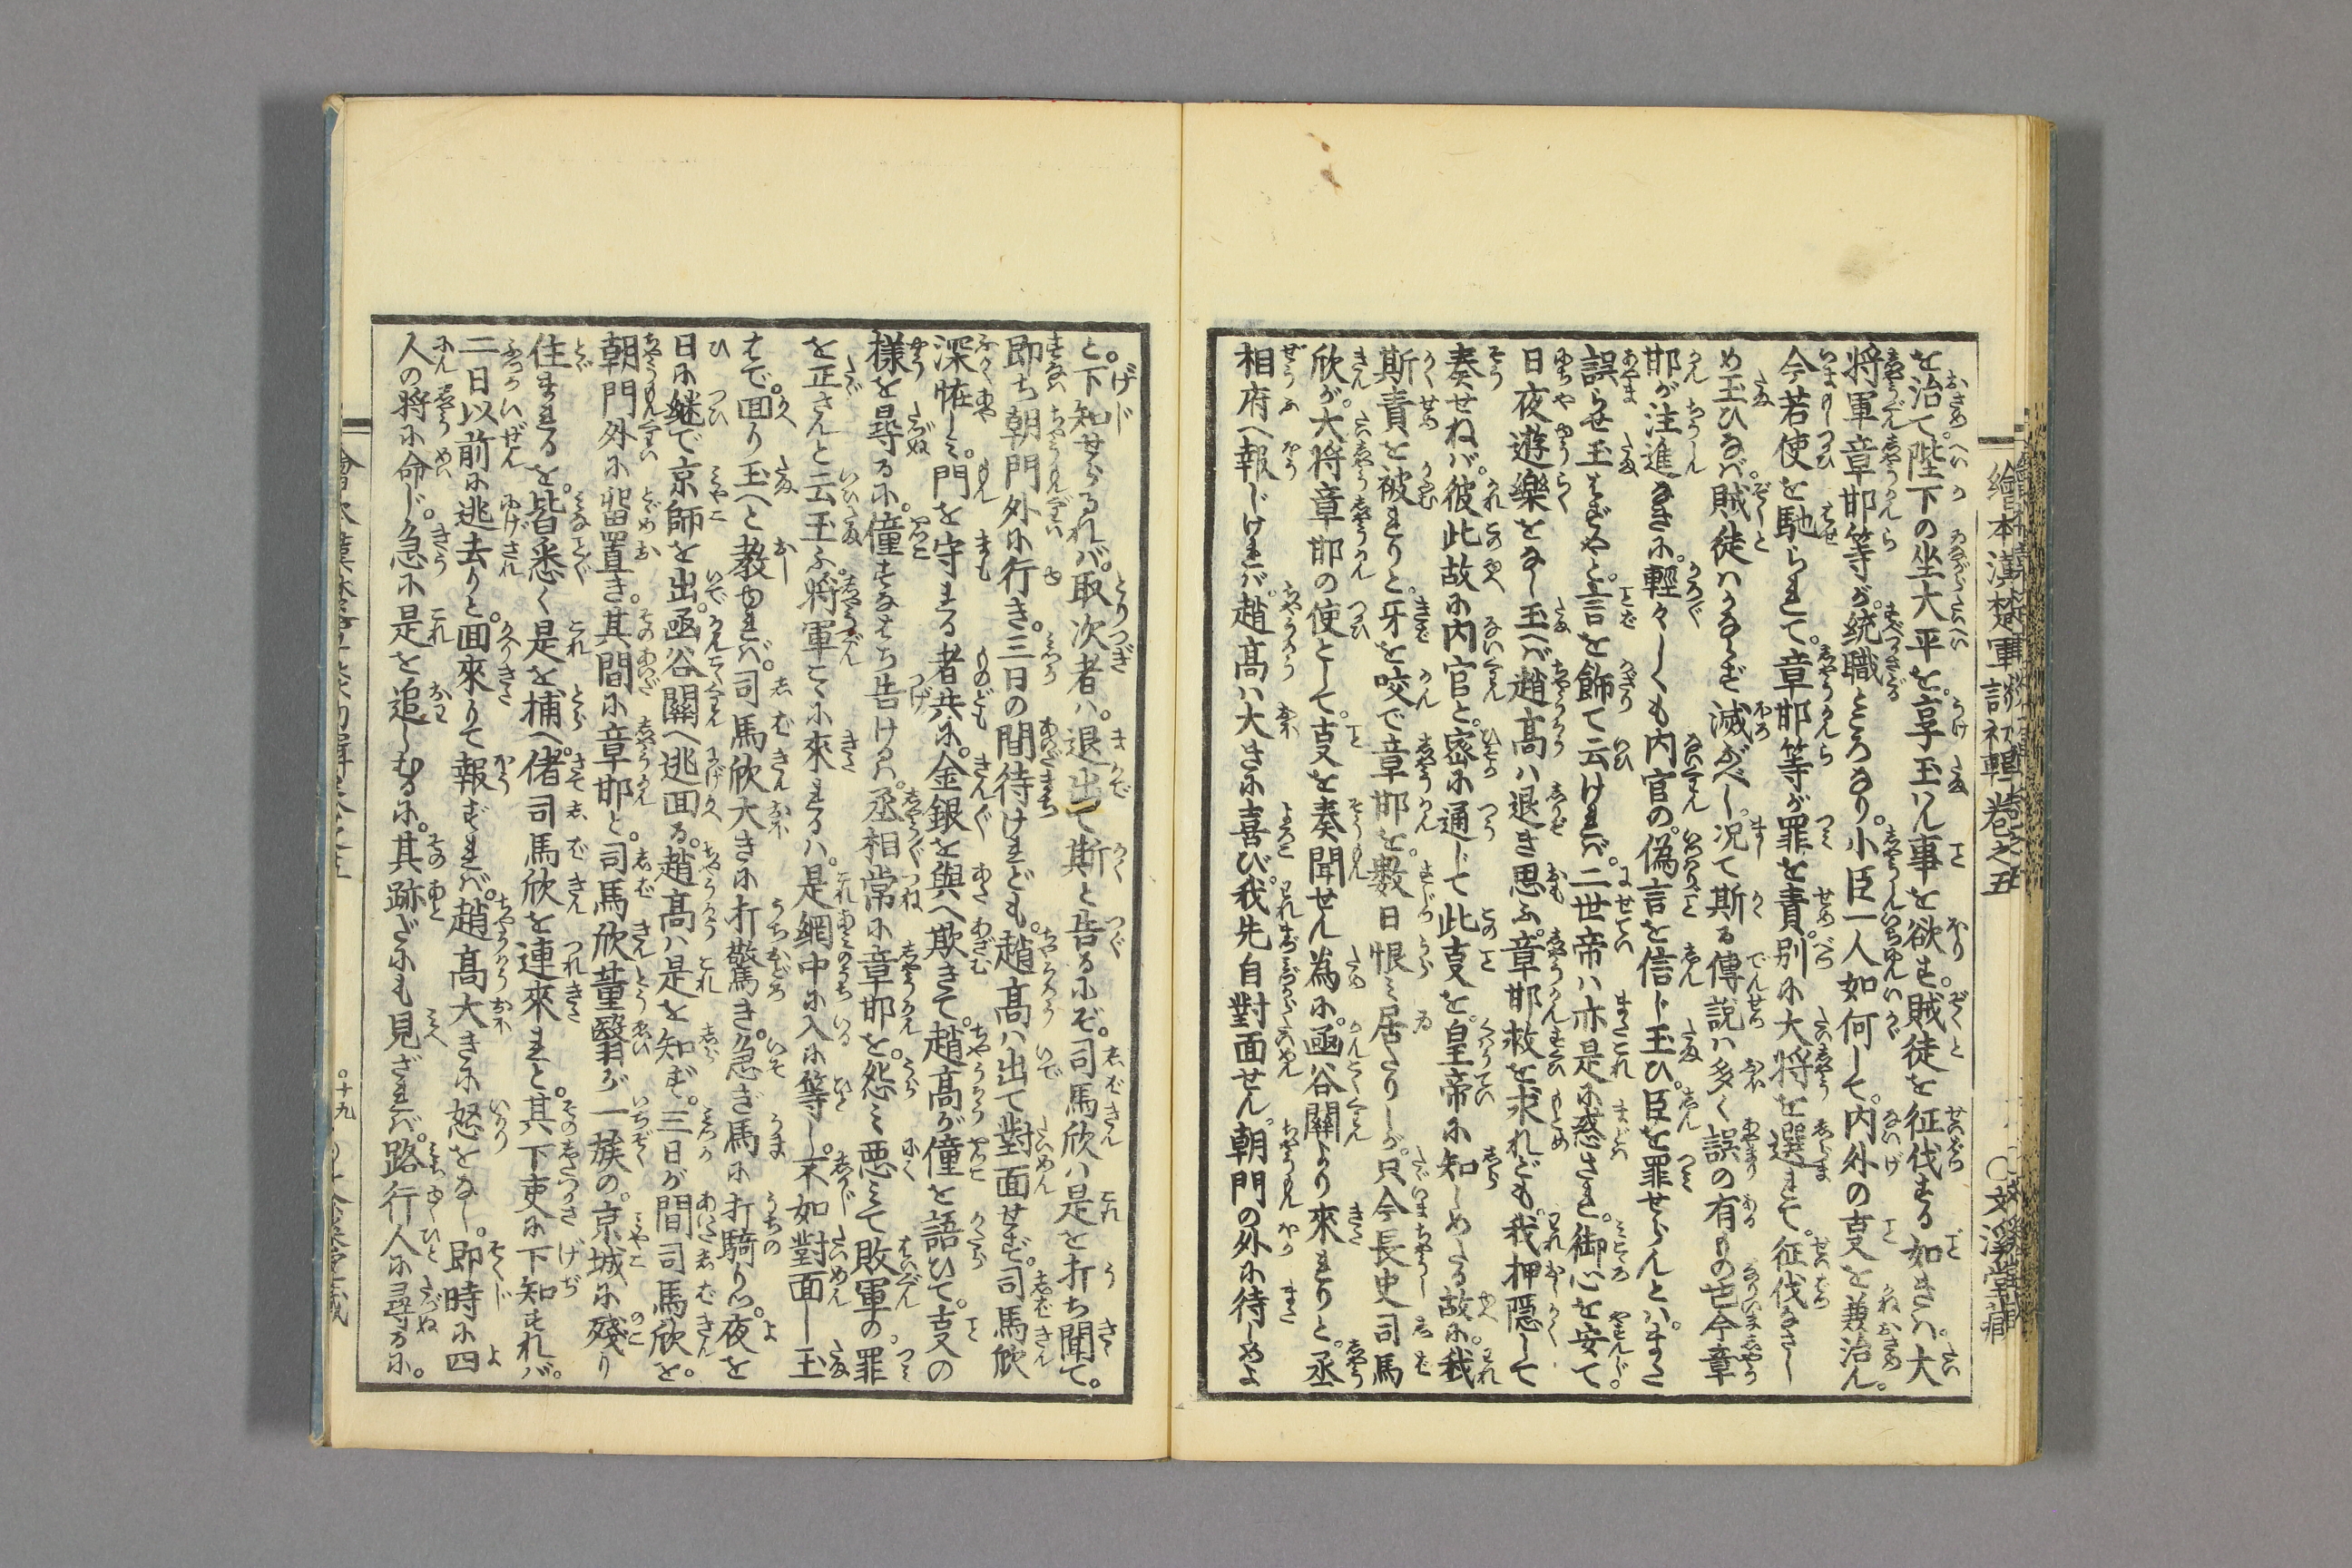 繪本漢楚軍談初輯巻之五
を治て。陛下の坐大平を。享玉はん事を欲す。賊徒を征伐する如きは。大
将軍章邯等が。統職ところなり。小臣一人如何して。内外の支を兼治ん。
今若使を馳られて。章邯等が罪を責。別に大将を選まて。征伐なさし
め玉ひなば。賊徒はかならず滅ぶべし。况て斯る傳説は多く誤の有もの也。今章
邯が注進なきに。輕々しくも内官の。偽言を信じ玉ひ。臣を罪せらんとは。まさ
誤らせ玉はずやと。言を飾て云ければ。二世帝は亦是に惑され。御心を安て
日夜遊樂をなし玉へば。趙高は退き思ふ。章邯救を求れども。我押隠して
奏せねば。彼此故に内官と。密に通じて此支を。皇帝に知しめたる故に。我
斯責を被れりと。牙を咬で章邯を。數日恨み居たりしが。只今長史司馬
欣が。大将章邯の使として。支を奏聞せん為に。函谷關より來れりと。丞
相府へ報じければ。趙高は大きに喜び。我先自對面せん。朝門の外に待しめよ
と。下知せらるれば。取次者は。退出て斯と告るにぞ。司馬欣は是を打ち聞て。
即ち朝門外に行き。三日の間待けれども。趙高は出て對面せず。司馬欣
深怪しみ。門を守れる者共に。金銀を與へ欺きて。趙高が僮を語ひて。支の
様を尋るに。僮すなはち告けるは。丞相常に章邯を。怨み悪みて敗軍の罪
を正さんと云玉ふ。将軍こゝに來れるは。是網中に入に等し。不如對面し玉
はで。面り玉へと教ゆれば。司馬欣大きに打驚き。急ぎ馬に打騎り。夜を
日に継で京師を出。函谷關へ逃面る。趙高は是を知ず。三日が間司馬欣を。
朝門外に留置き。其間に章邯と。司馬欣董翳が一族の。京城に殘り
住まれるを。皆悉く是を捕へ。偖司馬欣を連來れと。其下吏に下知すれば。
二日以前に逃去りと。面來りて報ずれば。趙高大きに怒をなし。即時に四
人の将に命じ。急に是を追しむるに。其跡だにも見ざれば。路行人に尋るに。
十九